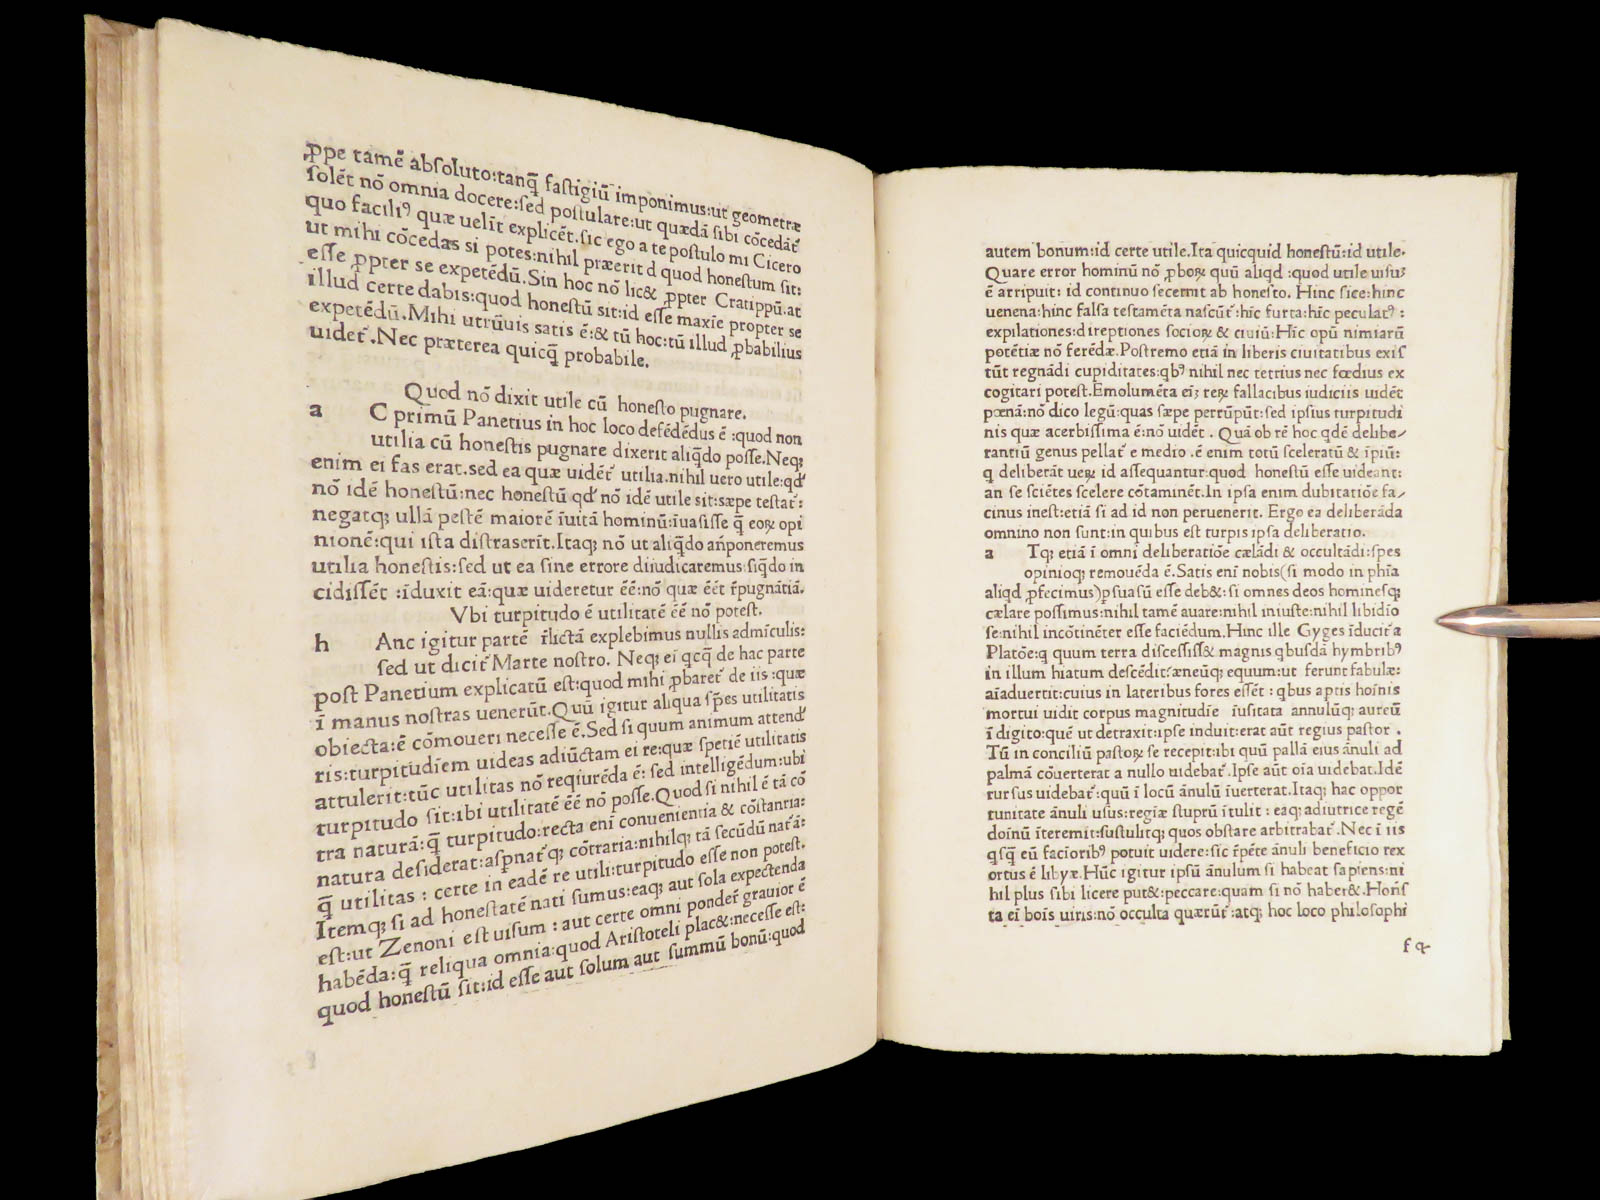 ꝓpe tamē absoluto:tanq̄ fastigiū imponimus:ut geometræ
solēt nō omnia docere:sed postulare:ut quædā sibi cōcedāt᷑
quo faciliꝰ quæ uelīt explicēt.sic ego a te postulo mi Cicero
ut mihi cōcedas si potes:nihil præerit d quod honestum sit:
esse ꝓpter se expetēdū.Sin hoc nō lic& ꝓpter Cratippū.at
illud certe dabis:quod honestū sit:id esse maxīe propter se
expetēdū.Mihi utrūuis satis ē:& tū hoc:tū illud ꝓbabilius
uidet᷑.Nec præterea quicq̄ probabile.
Quod nō dixit utile cū honesto pugnare.
a C primū Panetius in hoc loco defēdēdus ē:quod non
utilia cū honestis pugnare dixerit aliq̄do posse.Neqꝫ
enim ei fas erat.sed ea quæ uidēt᷑ utilia.nihil uero utile:qđ
nō idē honestū:nec honestū qđ nō idē utile sit:sæpe testat᷑:
negatqꝫ ullā pestē maiorē ī uitā hominū:īuasisse q̄ eoꝝ opi
nionē:qui ista distraxerīt.Itaqꝫ nō ut aliq̄do an̄poneremus
utilia honestis:sed ut ea sine errore diiudicaremus:siq̄do in
cidissēt :īduxit eā:quæ uideretur ēē:nō quæ ēēt r̄pugnātiā.
Vbi turpitudo ē utilitatē ēē nō potest.
h Anc igitur partē r̄lictā explebimus nullis admīculis:
sed ut dicit᷑ Marte nostro. Neqꝫ ei qcq̄ de hac parte
post Panetium explicatū est:quod mihi ꝓbaret᷑ de iis :quæ
ī manus nostras uenerūt.Quū igitur aliqua spēs utilitatis
obiecta:ē cōmoueri necesse ē.Sed si quum animum attend᷑
ris:turpitudīem uideas adiūctam ei re:quæ spetiē utilitatis
attulerit:tūc utilitas nō reqiurēda ē: sed intelligēdum:ubi
turpitudo sit:ibi utilitatē ēē nō posse.Quod si nihil ē tā cō
tra naturā:q̄ turpitudo:recta eni conuenientia & cōstantia:
natura desiderat:aspnat᷑qꝫ cōtraria:nihilqꝫ tā secūdū nat᷑ā:
q̄ utilitas : certe in eadē re utili:turpitudo esse non potest.
Itemqꝫ si ad honestatē nati sumus:eaqꝫ aut sola expectenda
est:ut Zenoni est uisum : aut certe omni ponder̄ grauior ē
habēda:q̄ reliqua omnia:quod Aristoteli plac&:necesse est:
quod honestū sit:id esse aut solum aut summū bonū:quod
autem bonum:id certe utile.Ita quicquid honestū:id utile.
Quare error hominū nō ꝓboꝝ quū aliqd :quod utile uisuꝫ
ē arripuit: id continuo secernit ab honesto. Hinc sice:hinc
uenena:hinc falsa testamēta nascūt᷑:hīc furta:hīc peculatꝰ :
expilationes:direptiones socioꝝ & ciuiū:Hīc opū nimiarū
potētiæ nō ferēdæ.Postremo etiā in liberis ciuitatibus exis
tūt regnādi cupiditates:qbꝰ nihil nec tetrius nec fœdius ex
cogitari potest.Emolumēta eiꝫ reꝝ fallacibus iudiciis uidēt
pœnā:nō dico legū:quas sæpe perrūpūt:sed ipsius turpitudi
nis quæ acerbissima ē:nō uidēt . Quā ob rē hoc qdē delibe⸗
rantiū genus pellat᷑ e medio .ē enim totū sceleratū & īpiū:
q deliberāt ueꝝ id assequantur:quod honestū esse uideant:
an se sciētes scelere cōtaminēt.In ipsa enim dubitatiōe fa⸗
cinus inest:etiā si ad id non peruenerit. Ergo ea deliberāda
omnino non sunt:in quibus est turpis ipsa deliberatio.
a Tqꝫ etiā ī omni deliberatiōe cælādi & occultādi:spes
opinioqꝫ remouēda ē.Satis eni nobis(si modo in phīa
aliqd ꝓfecimus)ꝑsuasū esse deb&:si omnes deos hominesqꝫ
cælare possimus:nihil tamē auare:nihil iniuste:nihil libidīo
se:nihil incōtinēter esse faciēdum.Hinc ille Gyges īducit᷑ a
Platōe:q quum terra discessiss& magnis qbusdā hymbribꝰ
in illum hiatum descēdit:æneūqꝫ equum:ut ferunt fabulæ:
aīaduertit:cuius in lateribus fores essēt : qbus aptis hoīnis
mortui uidit corpus magnitudīe īusitata annulūqꝫ aureū
ī digito:quē ut detraxit:ipse induit:erat aūt regius pastor .
Tū in conciliū pastoꝝ se recepit:ibi quū pallā eius ānuli ad
palmā cōuerterat a nullo uidebat᷑.Ipse aūt oīa uidebat.Idē
rursus uidebat᷑:quū ī locū ānulū īuerterat.Itaqꝫ hac oppor
tunitate ānuli usus:regiæ stuprū ītulit : eaqꝫ adiutrice regē
doīnū īteremit:sustulitqꝫ quos obstare arbitrabat᷑.Nec ī iis
qsq̄ eū facīoribꝰ potuit uidere:sic r̄pēte ānuli beneficio rex
ortus ē libyæ.Hūc igitur ipsū ānulum si habeat sapiens:ni
hil plus sibi licere put&:peccare:quam si nō haber&.Hon̄s
ta ei bois uiris:nō occulta quærūt᷑ :atqꝫ hoc loco philosophi
f ꝗ